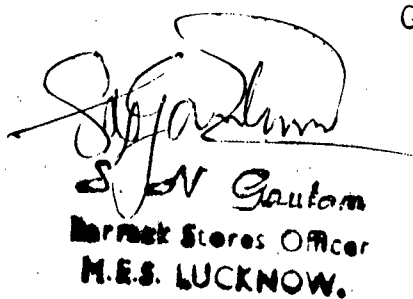 G
S N Gautam
Barrack Stores Officer
M.E.S. LUCKNOW.